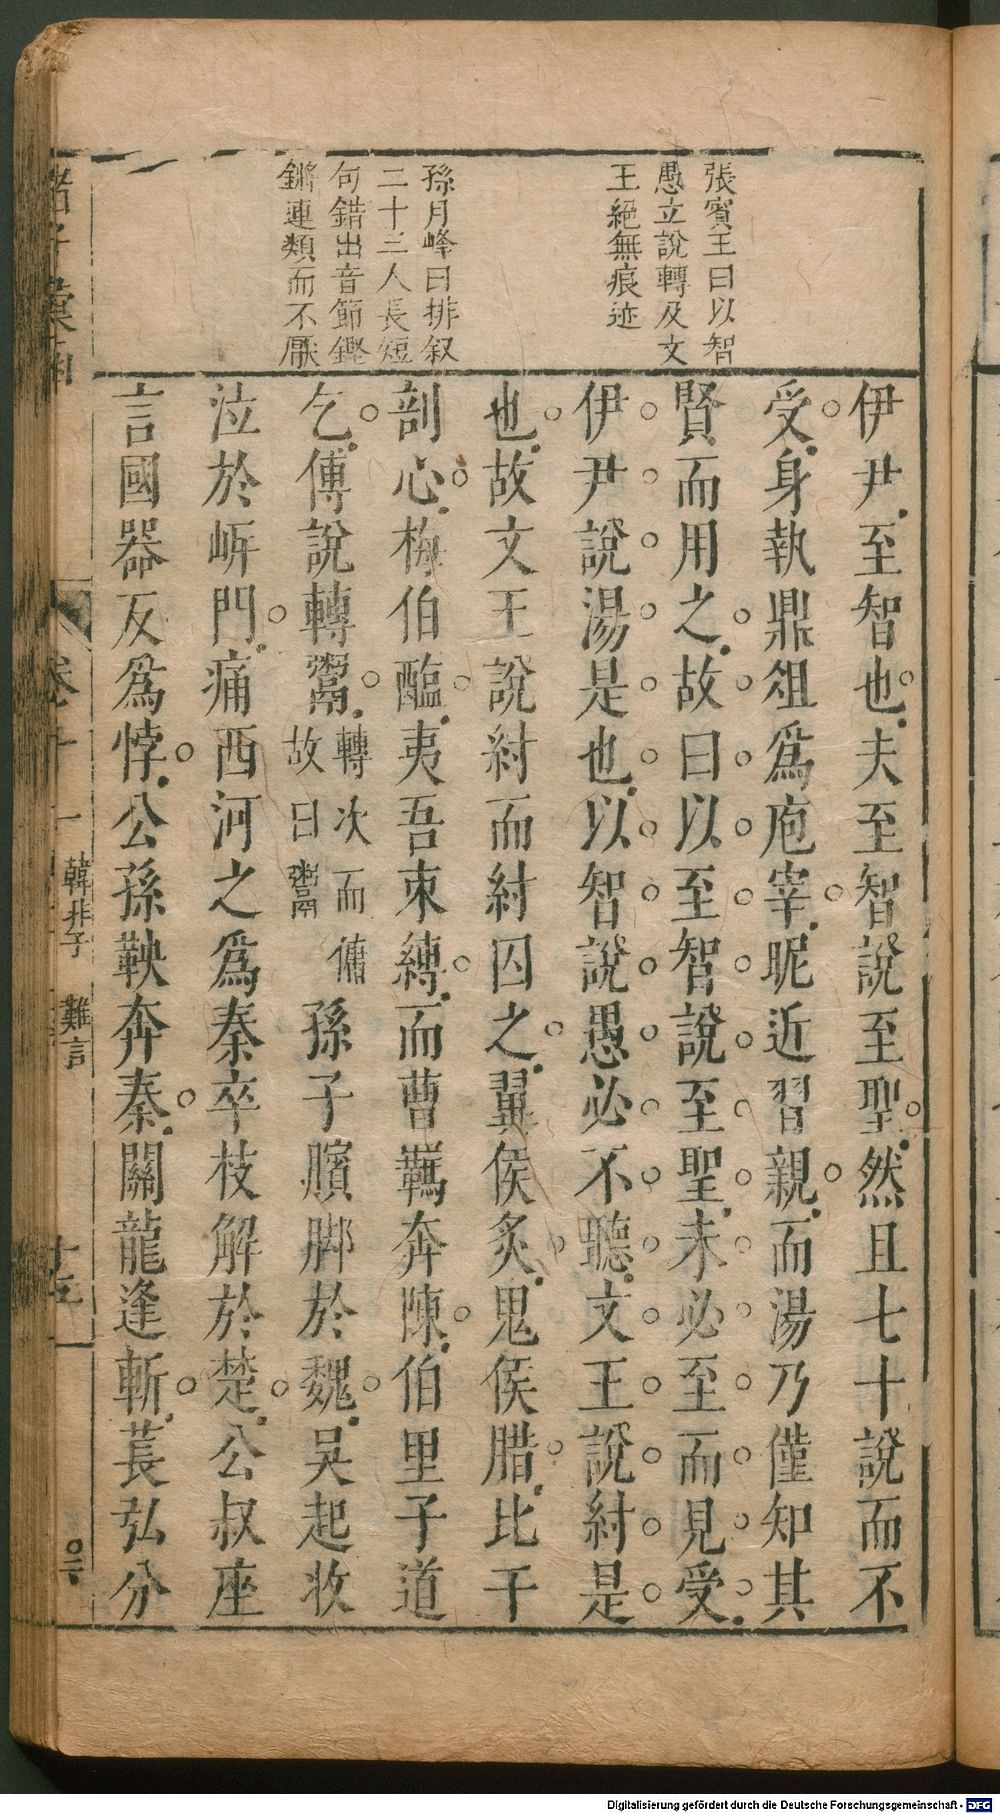 張賓王曰以智
愚立說轉及文
王絕無痕迹
孫月峰曰排叙
二十三人長短
句錯出音節鏗
鏘連類而不厭
伊尹至智也夫至智說至聖然且七十說而不
受身執鼎俎爲庖宰昵近習親而湯乃僅知其
賢而用之故曰以至智說至聖未必至而見受
伊尹說湯是也以智說愚必不聽文王說紂是
也故文王說紂而紂囚之翼侯炙鬼侯腊比干
剖心梅伯醢夷吾束縛而曹羈奔陳伯里子道
乞傅說轉鬻轉次而傭故曰鬻孫子臏脚於魏吳起收
泣於岍門痛西河之爲秦卒枝解於楚公叔座
言國器反爲悖公孫鞅奔秦關龍逢斬萇弘分
卷十一
韓非子
難言
Digitalisierung gefördert durch die Deutsche Forschungsgemeinschaft - DFG